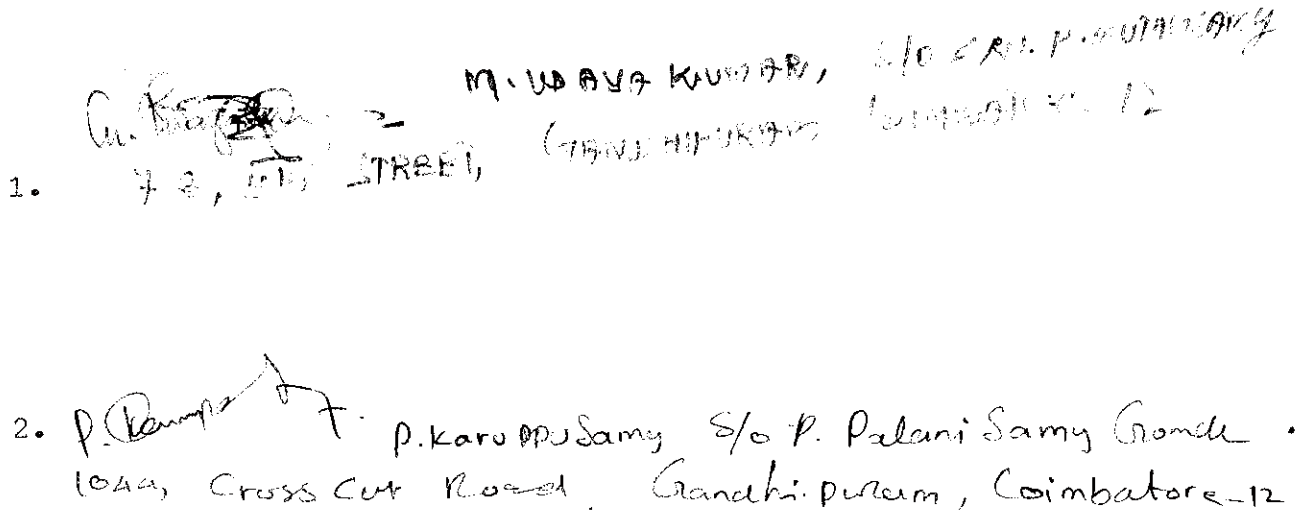 M. UDAYA KUMAR, S/O SRI. P. MUTHUSAMY
1. 72, STREET, GANDHIPURAM COIMBATORE-12
2. P. P. KaruppuSamy S/o P. Palani Samy Gounder.
Cross Cut Road, Gandhipuram, Coimbatore-12